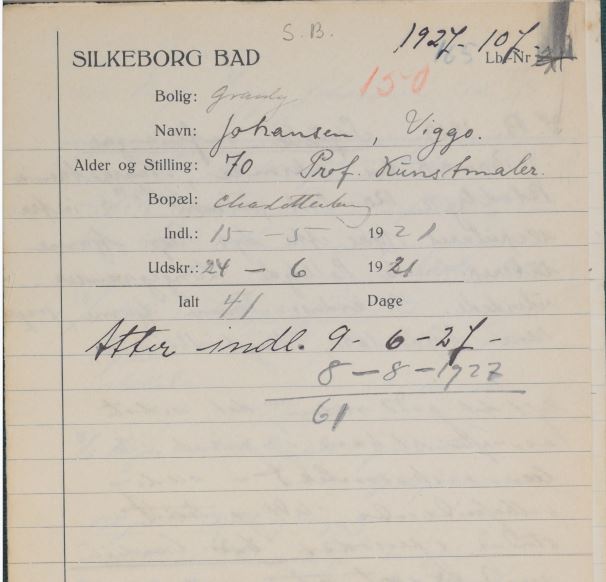 S.B.
1927-107.
SILKEBORG BAD
Lb. Nr.
150
Bolig:
Navn: Johansen, Viggo.
Alder og Stilling: 70 Prof. Kunstmaler.
Bopæl: Charlottenborg
Indl.: 15 - 5 1921
Udskr.: 24 - 6 1921
Ialt 41 Dage
Atter indl. 9 - 6 - 27 -
8 - 8 - 1927
61